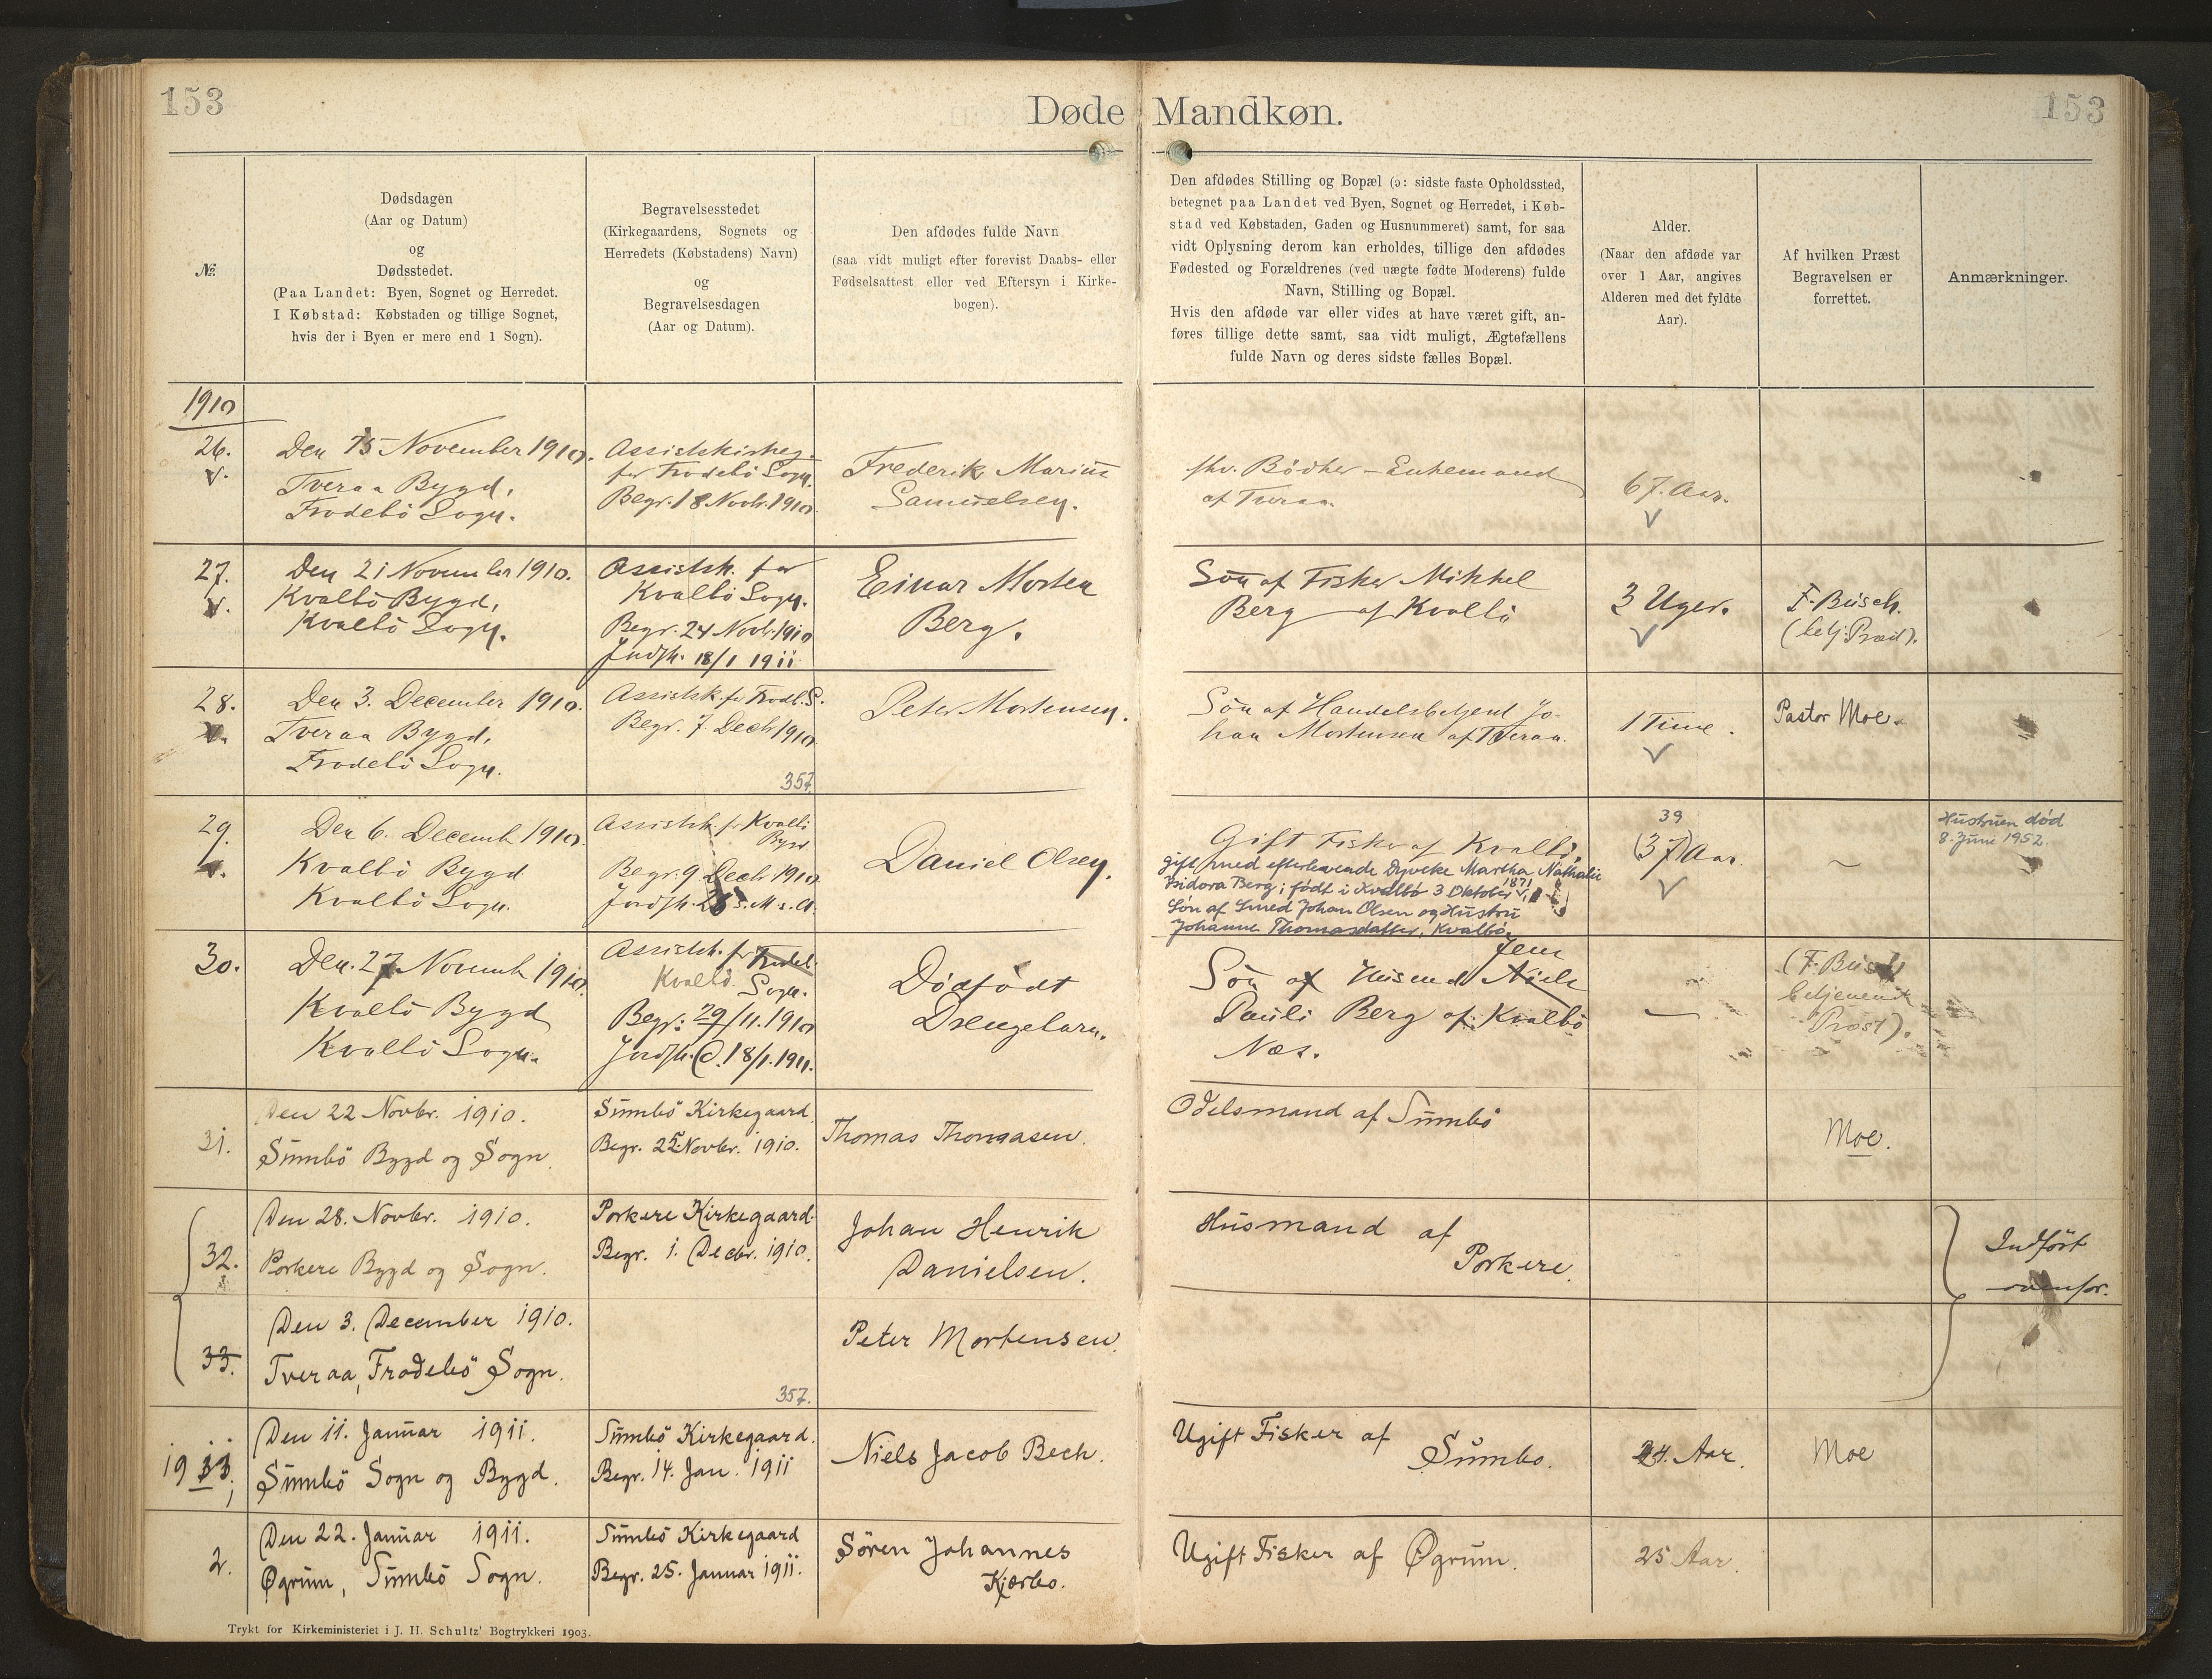 153
Døde Mandkøn.
153
№
Dødsdagen
(Aar og Datum)
og
Dødsstedet.
(Paa Landet: Byen, Sognet og Herredet.
I Købstad: Købstaden og tillige Sognet,
hvis der i Byen er mere end 1 Sogn).
Begravelsesstedet
(Kirkegaardens, Sognets og
Herredets (Købstadens) Navn)
og
Begravelsesdagen
(Aar og Datum).
Den afdødes fulde Navn
(saa vidt muligt efter forevist Daabs- eller
Fødselsattest eller ved Eftersyn i Kirke-
bogen).
Den afdødes Stilling og Bopæl (ɔ: sidste faste Opholdssted,
betegnet paa Landet ved Byen, Sognet og Herredet, i Køb-
stad ved Købstaden, Gaden og Husnummeret) samt, for saa
vidt Oplysning derom kan erholdes, tillige den afdødes
Fødested og Forældrenes (ved uægte fødte Moderens) fulde
Navn, Stilling og Bopæl.
Hvis den afdøde var eller vides at have været gift, an-
føres tillige dette samt, saa vidt muligt, Ægtefællens
fulde Navn og deres sidste fælles Bopæl.
Alder.
(Naar den afdøde var
over 1 Aar, angives
Alderen med det fyldte
Aar).
Af hvilken Præst
Begravelsen er
forrettet.
Anmærkninger.
1910
26.
v.
Den 15 November 1910.
Tveraa Bygd,
Frodebö Sogn.
Assistskirkeg.
for Frodebö Sogn.
Begr. 18 Novb. 1910
Frederik Marius
Samuelsen.
fhv. Bödker - Enkemand
af Tveraa.
67. Aar.
27.
v.
Den 21 November 1910.
Kvalbö Bygd,
Kvalbö Sogn.
Assistsk. for
Kvalbö Sogn.
Begr. 24 Novb. 1910
Jordfk. 18/1 1911
Einar Morten
Berg.
Sön af Fisker Mikkel
Berg af Kvalbö
3 Uger.
F. Büsch.
(betj. Præst).
28.
v.
Den 3. December 1910.
Tveraa Bygd,
Frodebö Sogn.
Assistsk. for Frodb. S.
Begr. 7. Decb 1910
357.
Peter Mortensen.
Sön af Handelsbetjent Jo-
han Mortensen af Tveraa.
1 Time.
Pastor Moe.
29.
v.
Den 6. Decemb 1910.
Kvalbö Bygd
Kvalbö Sogn.
Assistsk. for Kvalbö
Bygd
Begr. 9 Decb. 1910
Jordfk. 28 s. M. s. A.
Daniel Olsen.
Gift Fisker af Kvalbö,
gift med efterlevende Dyveke Martha Nathalie
Isidora Berg; født i Kvalbø 3 Oktober 1871
Søn af Smed Johan Olsen og Hustru
Johanne Thomasdatter, Kvalbø.
39
(37) Aar.
Hustruen død
8. Juni 1952.
30.
Den 27 Novemb 1910.
Kvalbö Bygd
Kvalbö Sogn.
Assistsk. for Frodeb.
Kvalbö Sogn.
Begr: 29/11. 1910
Jordfk. d. 18/1. 1911.
Dödfödt
Drengebarn.
Sön af Husmd Niels Jens
Pauli Berg af Kvalbö
Næs.
(F. Büsch
betjenende
Præst).
31.
Den 22 Novbr. 1910.
Sümbö Bygd og Sogn.
Sümbö Kirkegaard
Begr. 25 Novbr. 1910.
Thomas Thomasen.
Odelsmand af Sümbö
Moe.
32.
Den 28. Novbr. 1910.
Porkere Bygd og Sogn.
Porkere Kirkegaard.
Begr. 1. Decbr. 1910.
Johan Henrik
Danielsen.
Husmand af
Porkere.
Indført
ovenfor.
33.
Den 3. December 1910.
Tveraa, Frodebö Sogn.
357.
Peter Mortensen.
1911
1
Den 11. Januar 1911.
Sümbö Sogn og Bygd.
Sümbö Kirkegaard.
Begr. 14. Jan. 1911
Niels Jacob Bech.
Ugift Fisker af
Sümbo.
24. Aar.
Moe
2.
Den 22. Januar 1911.
Øgrum, Sümbö Sogn.
Sümbö Kirkegaard
Begr. 25. Januar 1911.
Sören Johannes
Kjærbo.
Ugift Fisker af Øgrum.
25 Aar
Trykt for Kirkeministeriet i J. H. Schultz' Bogtrykkeri 1903.